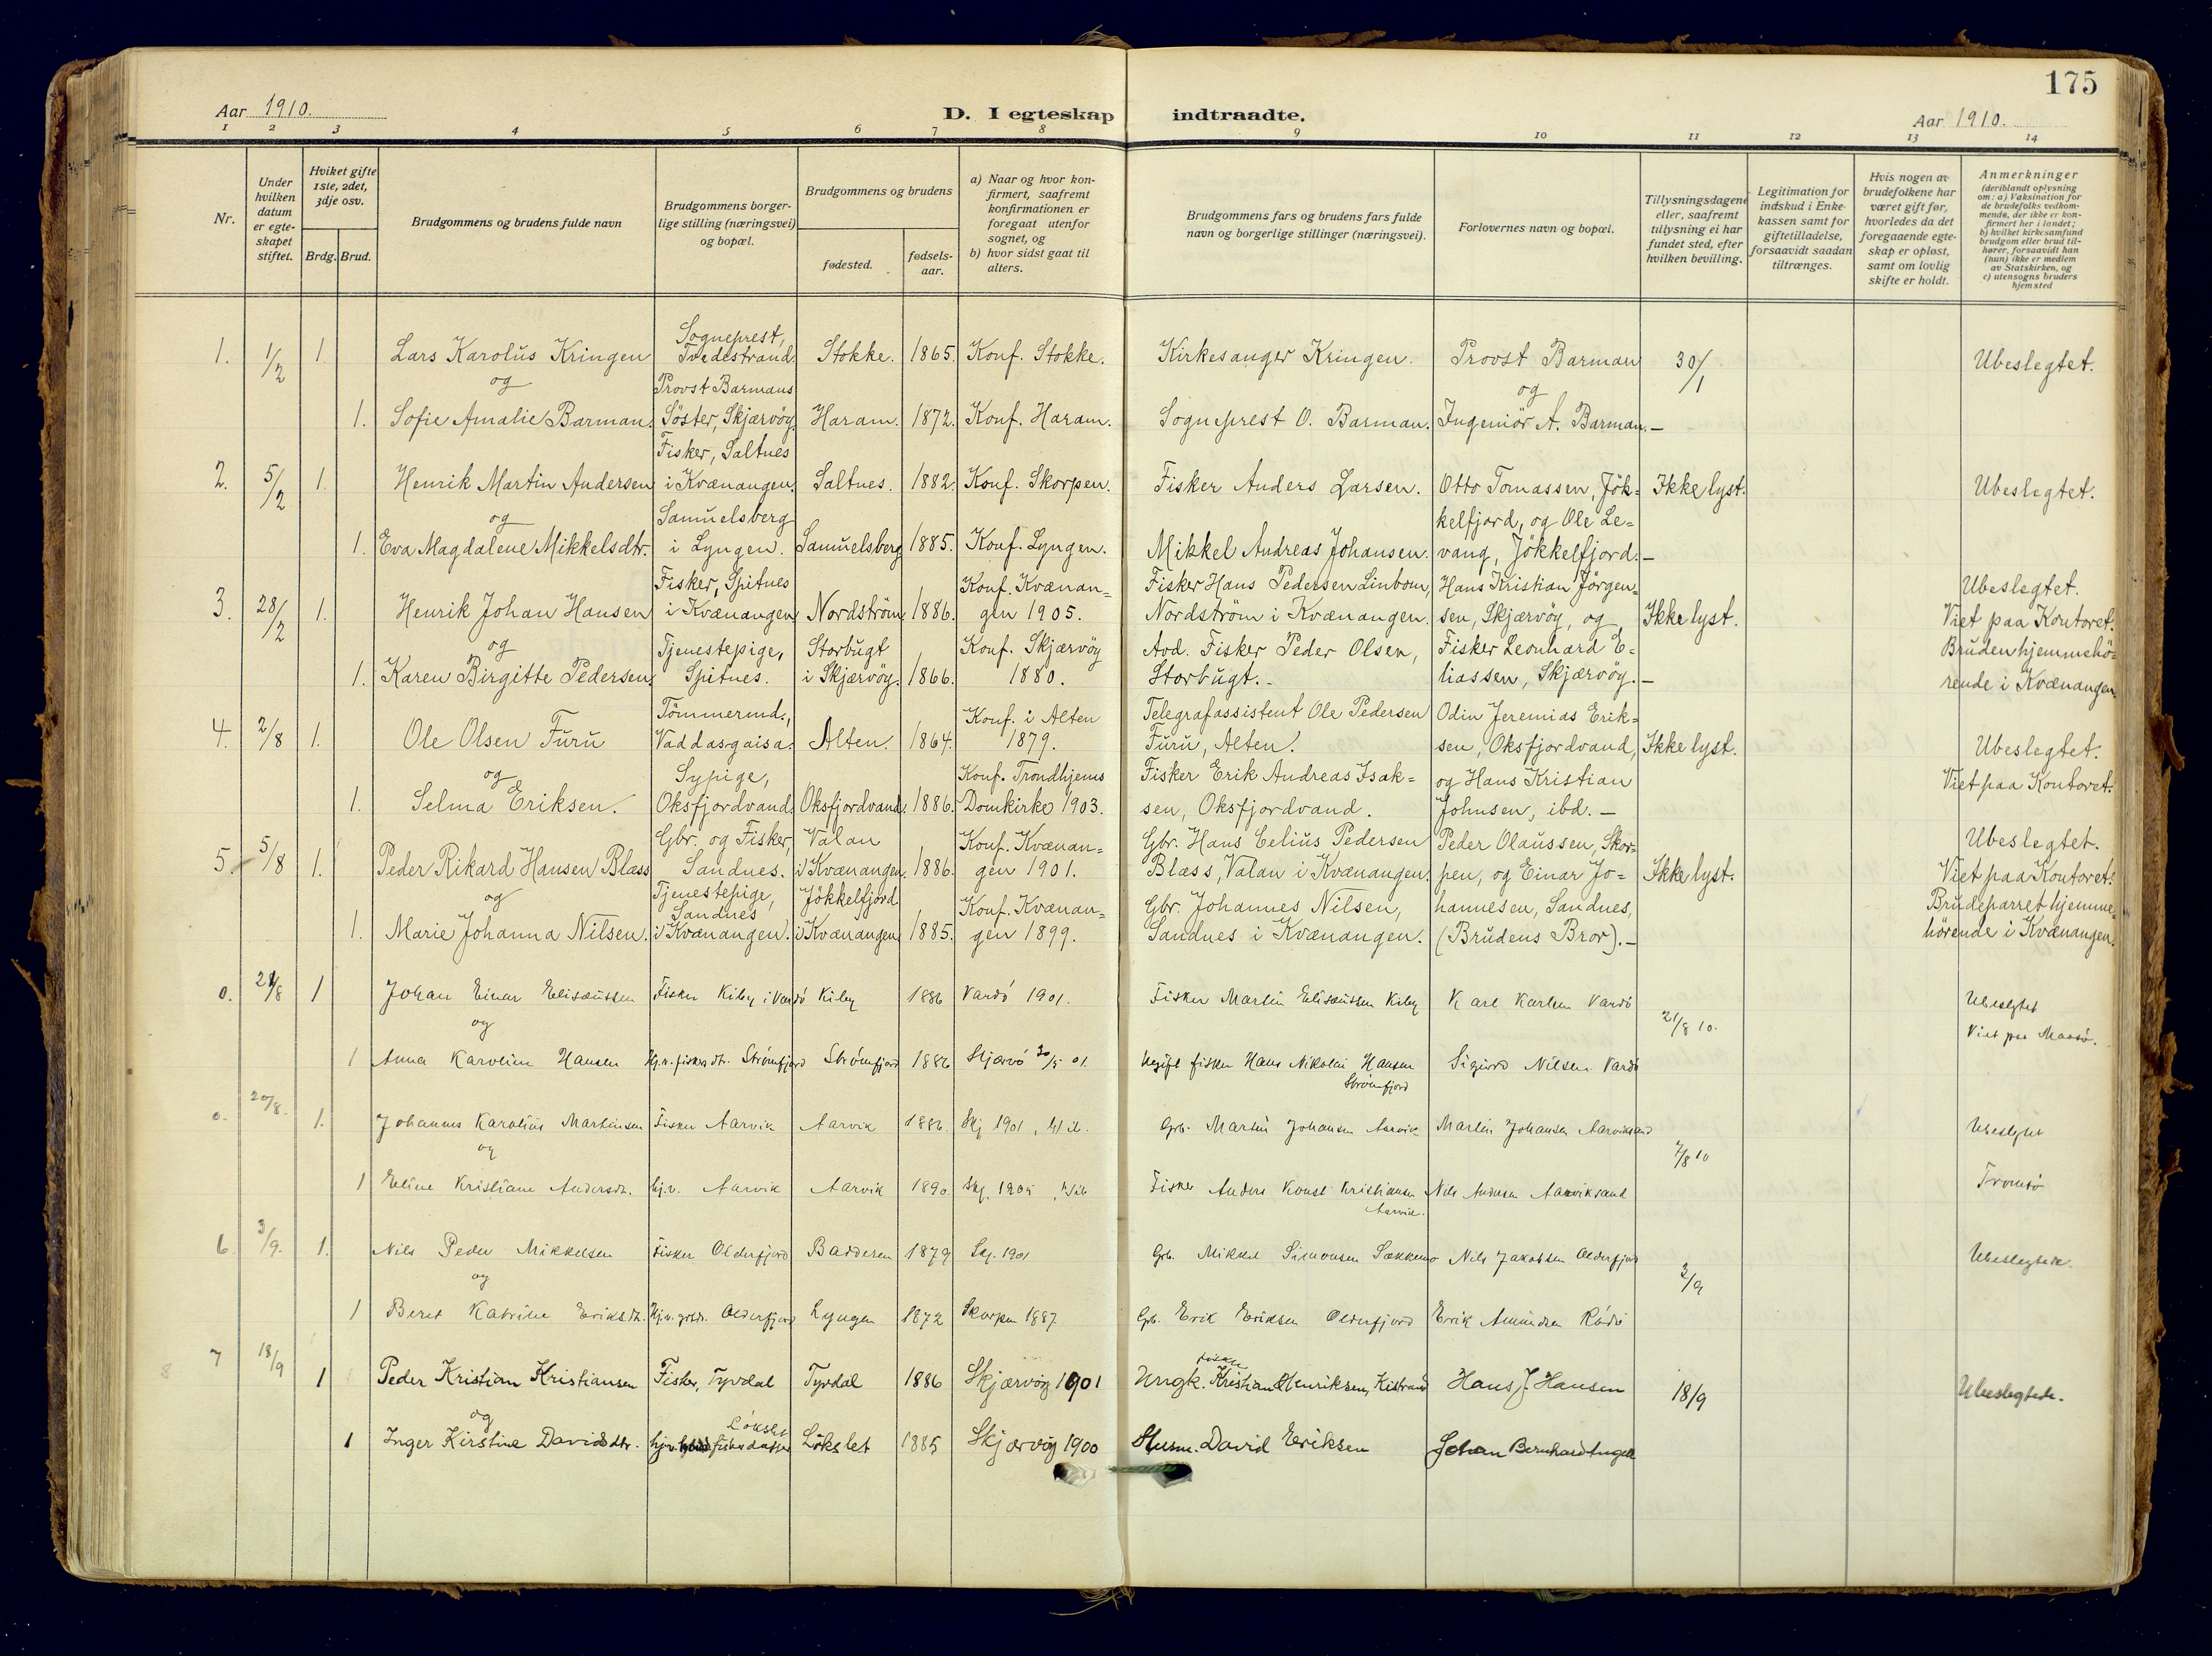 175
Aar 1910.
D. I egteskap indtraadte.
Aar 1910.
1 2 3 4 5 6 7 8 9 10 11 12 13 14
Nr.
Under hvilken datum er egte-skapet stiftet.
Hviket gifte 1ste, 2det, 3dje osv.
Brdg. Brud.
Brudgommens og brudens fulde navn
Brudgommens borger-lige stilling (næringsvei) og bopæl.
Brudgommens og brudens
fødested.
fødsels-aar.
a) Naar og hvor kon-firmert, saafremt konfirmationen er foregaat utenfor sognet, og
b) hvor sidst gaat til alters.
Brudgommens fars og brudens fars fulde navn og borgerlige stillinger (næringsvei).
Forlovernes navn og bopæl.
Tillysningsdagene eller, saafremt tillysning ei har fundet sted, efter hvilken bevilling.
Legitimation for indskud i Enke-kassen samt for giftetilladelse, forsaavidt saadan tiltrænges.
Hvis nogen av brudefolkene har været gift før, hvorledes da det foregaaende egte-skap er opløst, samt om lovlig skifte er holdt.
Anmerkninger (deriblandt oplysning om: a) Vaksination for de brudefolks vedkom-mende, der ikke er kon-firmert her i landet; b) hvilket kirkesamfund brudgom eller brud til-hører, forsaavidt han (hun) ikke er medlem av Statskirken, og c) utensogns bruders hjemsted
1. 1/2 1. Lars Karolus Kringen Sogneprest, Tvedestrand. Stokke. 1865. Konf. Stokke. Kirkesanger Kringen. Provst Barman 30/1 Ubeslegtet.
og
1. Sofie Amalie Barman. Provst Barmans Söster, Skjærvöy. Haram. 1872. Konf. Haram. Sogneprest O. Barman. og Ingeniör A. Barman.—
2. 5/2 1. Henrik Martin Andersen Fisker, Saltnes i Kvænangen. Saltnes. 1882. Konf. Skorpen. Fisker Anders Larsen. Otto Tomassen, Jök- Ikke lyst. Ubeslegtet.
og
1. Eva Magdalene Mikkelsdtr. Samuelsberg i Lyngen. Samuelsberg 1885. Konf. Lyngen. Mikkel Andreas Johansen. kelfjord, og Ole Le=vang, Jökkelfjord.—
3. 28/2 1. Henrik Johan Hansen Fisker, Spitnes i Kvænangen Nordström 1886. Konf. Kvænan=gen 1905. Fisker Hans Pedersen Linbom, Nordström i Kvænangen. Hans Kristian Jörgen=sen, Skjærvöy, og Ikke lyst. Ubeslegtet. Viet paa Kontoret.
og
1. Karen Birgitte Pedersen. Tjenestepige, Spitnes. Storbugt i Skjærvöy. 1866. Konf. Skjærvöy 1880. Avd. Fisker Peder Olsen, Storbugt. Fisker Leonhard E=liassen, Skjærvöy.— Bruden hjemmehö=rende i Kvænangen.
4. 2/8 1. Ole Olsen Furu Tömmermd., Vaddasgaisa. Alten. 1864. Konf. i Alten 1879. Telegrafassistent Ole Pedersen Furu, Alten. Odin Jeremias Erik=sen, Oksfjordvand, Ikke lyst. Ubeslegtet.
og
1. Selma Eriksen. Sypige, Oksfjordvand. Oksfjordvand. 1886. Konf. Trondhjems Domkirke 1903. Fisker Erik Andreas Isak=sen, Oksfjordvand. og Hans Kristian Johnsen, ibd. — Viet paa Kontoret.
5. 5/8 1. Peder Rikard Hansen Blæss Gbr. og Fisker, Sandnes. Valan i Kvænangen. 1886. Konf. Kvænan=gen 1901. Gbr. Hans Celius Pedersen Blæss, Valan i Kvænangen. Peder Olaussen, Skor=pen, og Einar Jo= Ikke lyst. Ubeslegtet. Viet paa Kontoret.
og
1. Marie Johanna Nilsen. Tjenestepige, Sandnes i Kvænangen. Jökkelfjord i Kvænangen. 1885. Konf. Kvænan=gen 1899. Gbr. Johannes Nilsen, Sandnes i Kvænangen. hannesen, Sandnes, (Brudens Bror).— Brudeparret hjemme hörende i Kvænangen.
0. 21/8 1 Johan Einar Elisæussen Fisker Kiby i Vardö Kiby 1886 Vardö 1901. Fisker Martin Elisæussen Kiby Karl Karlsen Vardö 21/8 10. Ubeslegtet
og
1 Anna Karoline Hansen Hj.v. fiskerdtr. Strömfjord Strömfjord 1886 Skjærvö 30/5 01. Ugift fisker Hans Nikolai Hansen Strömfjord Sigurd Nilsen Vardö Viet paa Maasö.
0. 20/8. 1. Johannes Karolius Martinsen Fisker Aarvik Aarvik 1886. Skj 1901, Grb. Martin Johansen Aarvik Martin Johansen Aarviksand 7/8 10 Ubeslegtet
og
1 Eline Kristiane Andersdtr. hj.v. Aarvik Aarvik 1890 Skj. 1905, Fisker Anders Konst Kristiansen Aarvik. Nils Andersen Aarviksand Tromsö
6. 3/9. 1. Nils Peder Mikkelsen Fisker Olderfjord Badderen 1879 Skj. 1901 Grb. Mikkel Simonsen Sækkemo Nils Jakobsen Olderfjord 3/9 Ubeslegtede.
og
1 Beret Katrine Eriksdtr. Hj.v. grbdtr. Olderfjord Lyngen 1872 Skorpen 1887. Gb. Erik Eriksen Olderfjord Erik Amundsen Rödö
8 7 18/9 1 Peder Kristian Kristiansen Fisker, Tyvdal Tyvdal 1886 Skjærvöy 1901 Ungk. fisker Kristian Henriksen, Kistrand Hans J. Hansen 18/9 Ubeslegtede.
og
1 Inger Kirstine Davidsdtr. hjv. fiskerdatter Lökslet Lökslet 1885 Skjærvöy 1900 Husm. David Eriksen Johan Bernhard